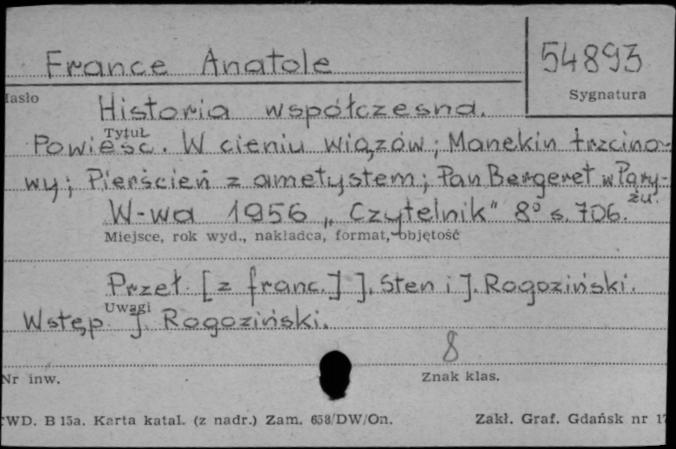 France Anatole
54893
Hasło
Sygnatura
Historia współczesna.
Tytuł
Powieść. W cieniu wiązów; Manekin trzcino-
wy; Pierścień z ametystem; Pan Bergeret w Pary-
żu.
W-wa 1956 „Czytelnik" 8° s. 706.
Miejsce, rok wyd., nakładca, format, objętość
Przeł. [z franc.] J. Sten i J. Rogoziński.
Uwagi
Wstęp J. Rogoziński.
8
Nr inw.
Znak klas.
CWD. B 15a. Karta katal. (z nadr.) Zam. 658/DW/On.
Zakł. Graf. Gdańsk nr 17